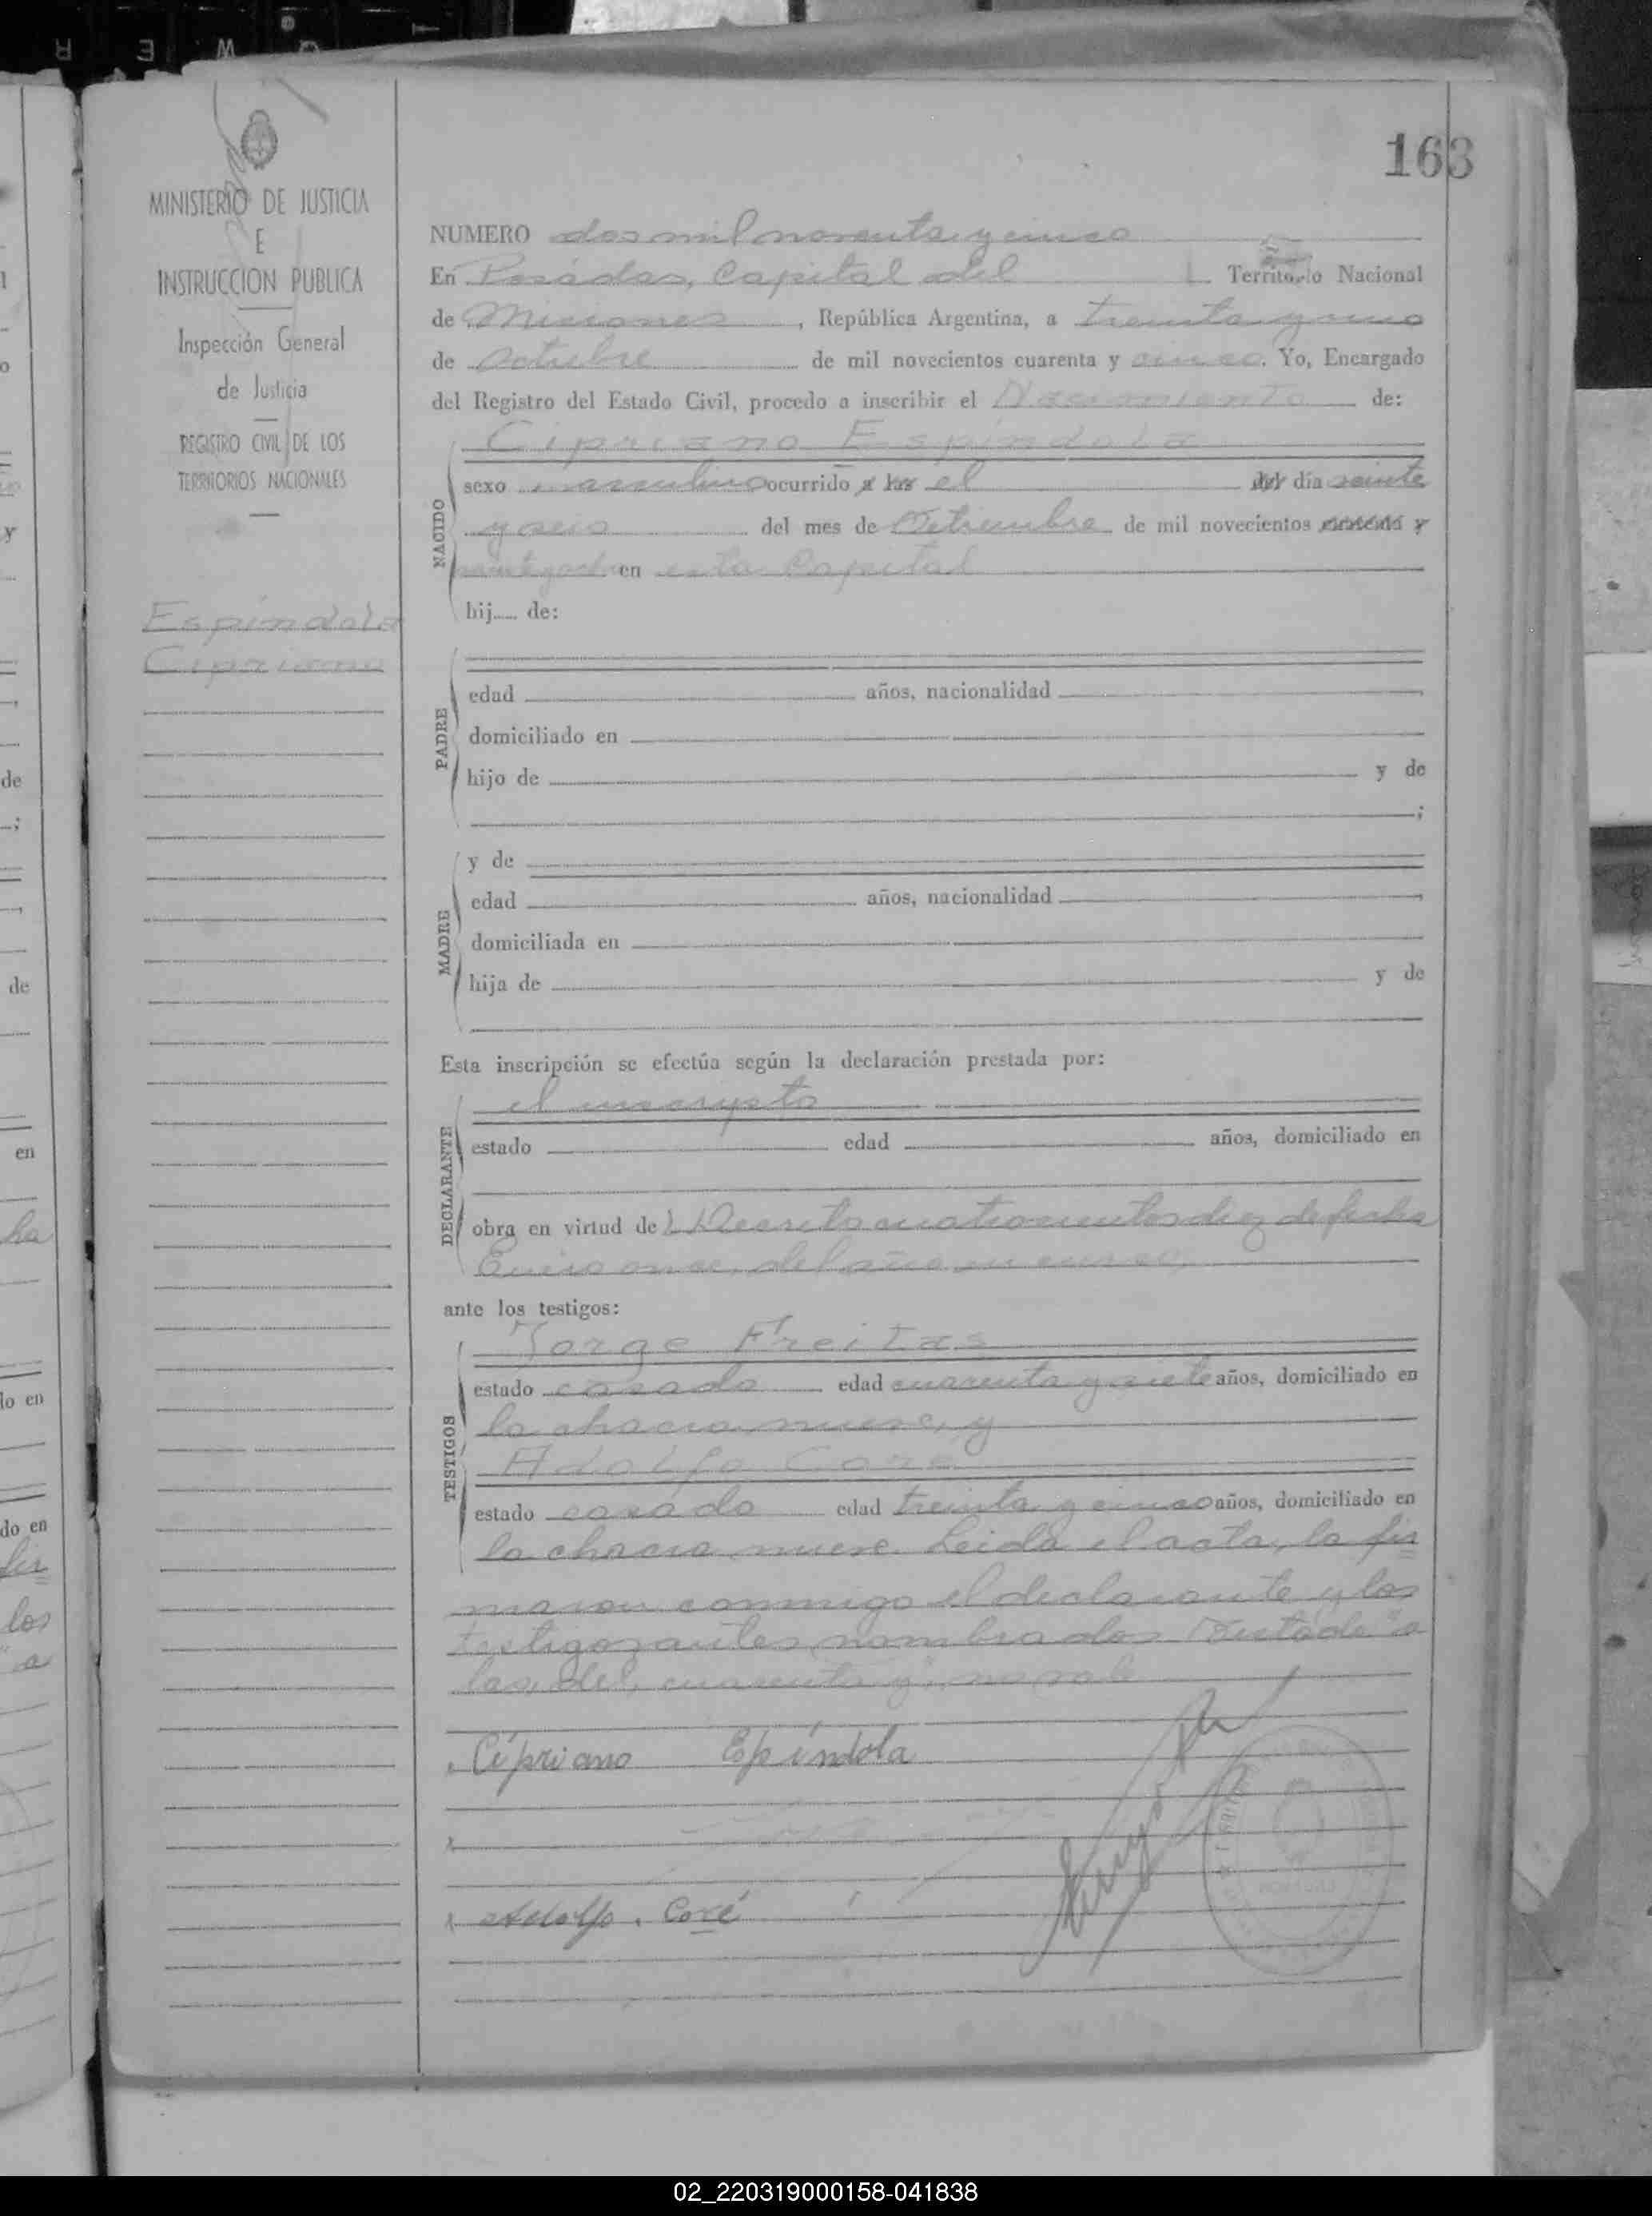 163
MINISTERIO DE JUSTICIA
E
INSTRUCCION PUBLICA
Inspección General
de Justicia
REGISTRO CIVIL DE LOS
TERRITORIOS NACIONALES
Espíndola
Cipriano
NUMERO dos mil noventa y cinco
En Posadas, Capital del Territorio Nacional
de Misiones, República Argentina, a treinta y uno
de Octubre de mil novecientos cuarenta y cinco. Yo, Encargado
del Registro del Estado Civil, procedo a inscribir el Nacimiento de:
NACIDO
Cipriano Espíndola
sexo masculino ocurrido a las el del día veinte
y seis del mes de Setiembre de mil novecientos cuarenta y
en esta Capital
hij de:
PADRE
edad años, nacionalidad
domiciliado en
hijo de y de
;
MADRE
y de
edad años, nacionalidad
domiciliada en
hija de y de
Esta inscripción se efectúa según la declaración prestada por:
DECLARANTE
el inscripto
estado edad años, domiciliado en
obra en virtud del Decreto cuatrocientos diez de fecha
Enero once, del año en curso,
ante los testigos:
TESTIGOS
Jorge Freitas
estado casado edad cuarenta y siete años, domiciliado en
la chacra nueve, y
Adolfo Coré
estado casado edad treinta y cinco años, domiciliado en
la chacra nueve. Leida el acta, la fir
maron conmigo el declarante y los
testigos antes nombrados. Testado "a
las, del, cuarenta y", no vale
Cipriano Espíndola
Adolfo. Coré
02_220319000158-041838